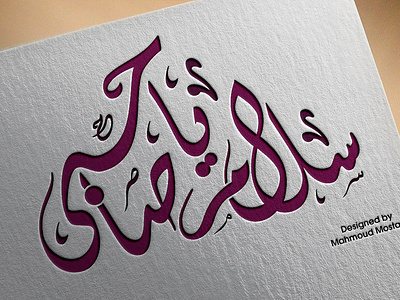 سلام يا صاحبى
Designed by
Mahmoud Mosta